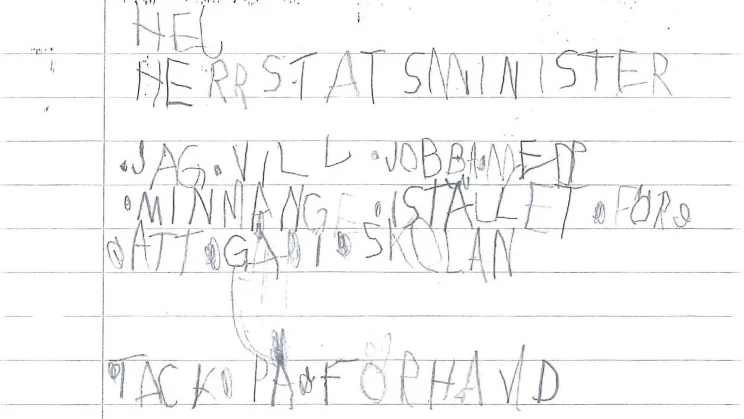 HEJ
HERR STATSMINISTER
.JAG.VILL.JOBBA.MED
.MIN MANGE.ISTÄLLET.FÖR.
.ATT.GÅ.I.SKOLAN
.TACK.PÅ.FÖRHAND